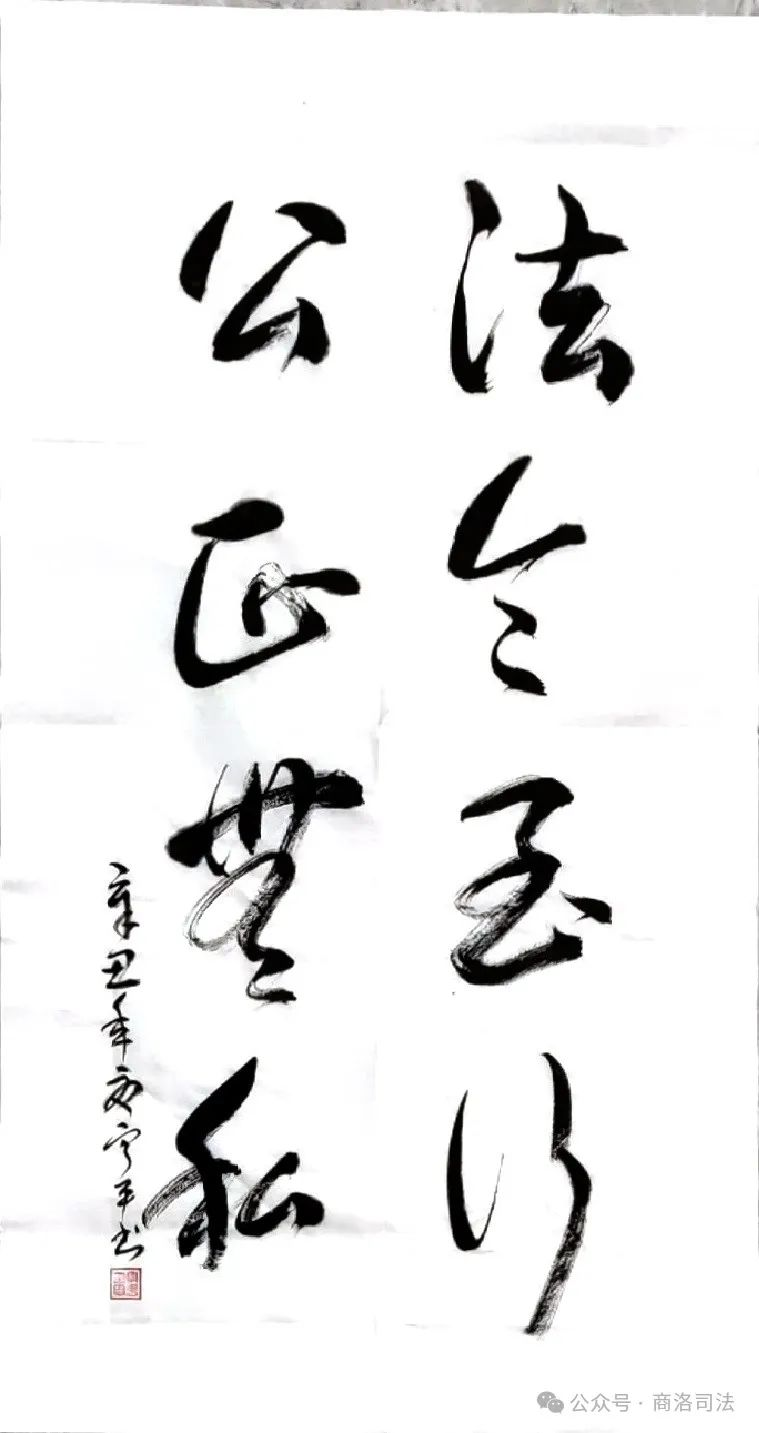 法令至行
公正無私
辛丑年 宁平书
公众号·商洛司法